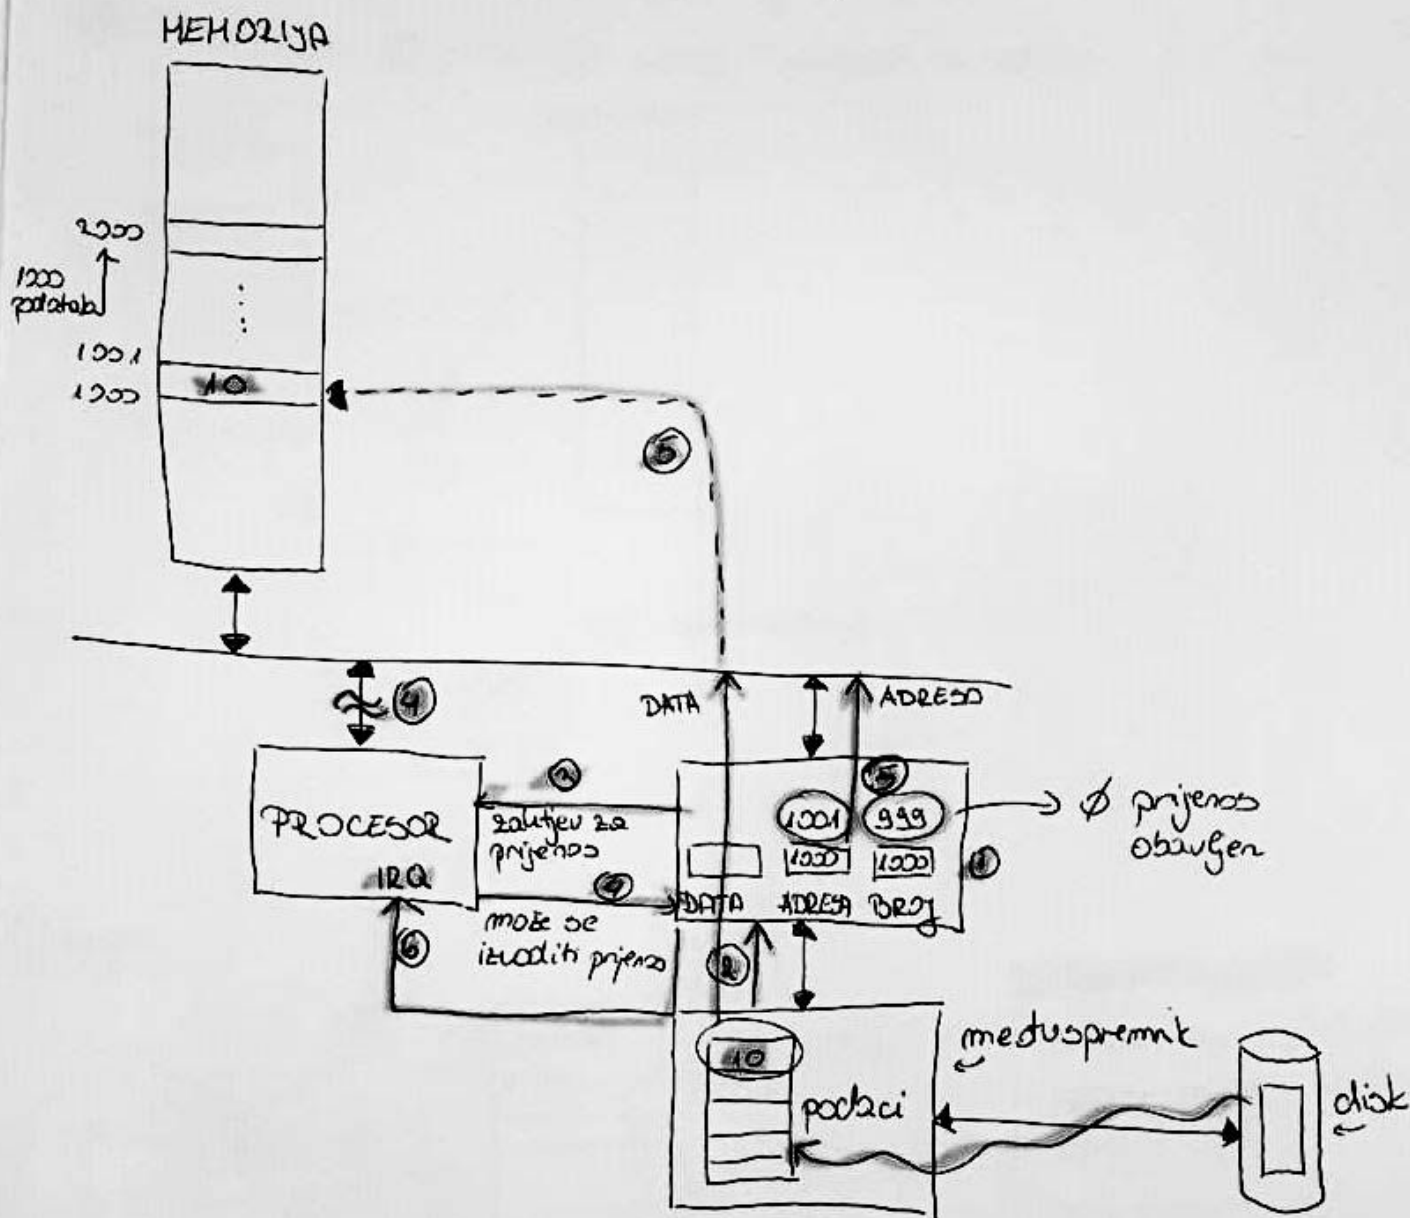 MEMORIJA
2000
1000
podataka
1001
1000
10
5
4
DATA
ADRESA
PROCESOR
IRQ
3
zahtjev za
prijenos
4
može se
izvoditi prijenos
5
1001
999
1000
1000
DATA
ADRESA
BROJ
1
Ø prijenos
obavljen
6
2
10
podaci
međuspremnik
disk